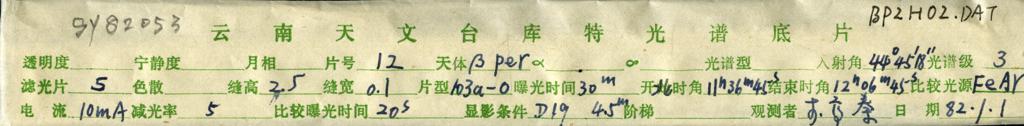 gy82053 云南天文台库特光谱底片 BP2H02.DAT
透明度 宁静度 月相 片号 12 天体 β per α ∞ 光谱型 入射角 44°45'18" 光谱级 3
滤光片 5 色散 缝高 2.5 缝宽 0.1 片型 103a-O 曝光时间 30m 开始时角 11h36m45s 结束时角 12h06m45s 比较光源 FeAr
电流 10mA 减光率 5 比较曝光时间 20s 显影条件 D19 4.5m 阶梯 观测者 日期 82.1.1